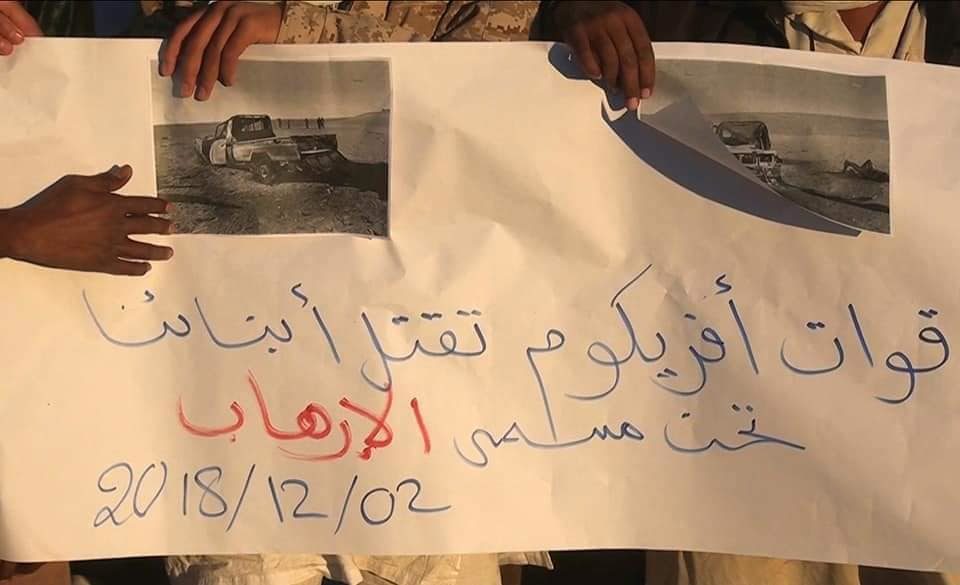 قوات أفريكوم تقتل أبنائنا
تحت مسمى الارهاب
2018/12/02